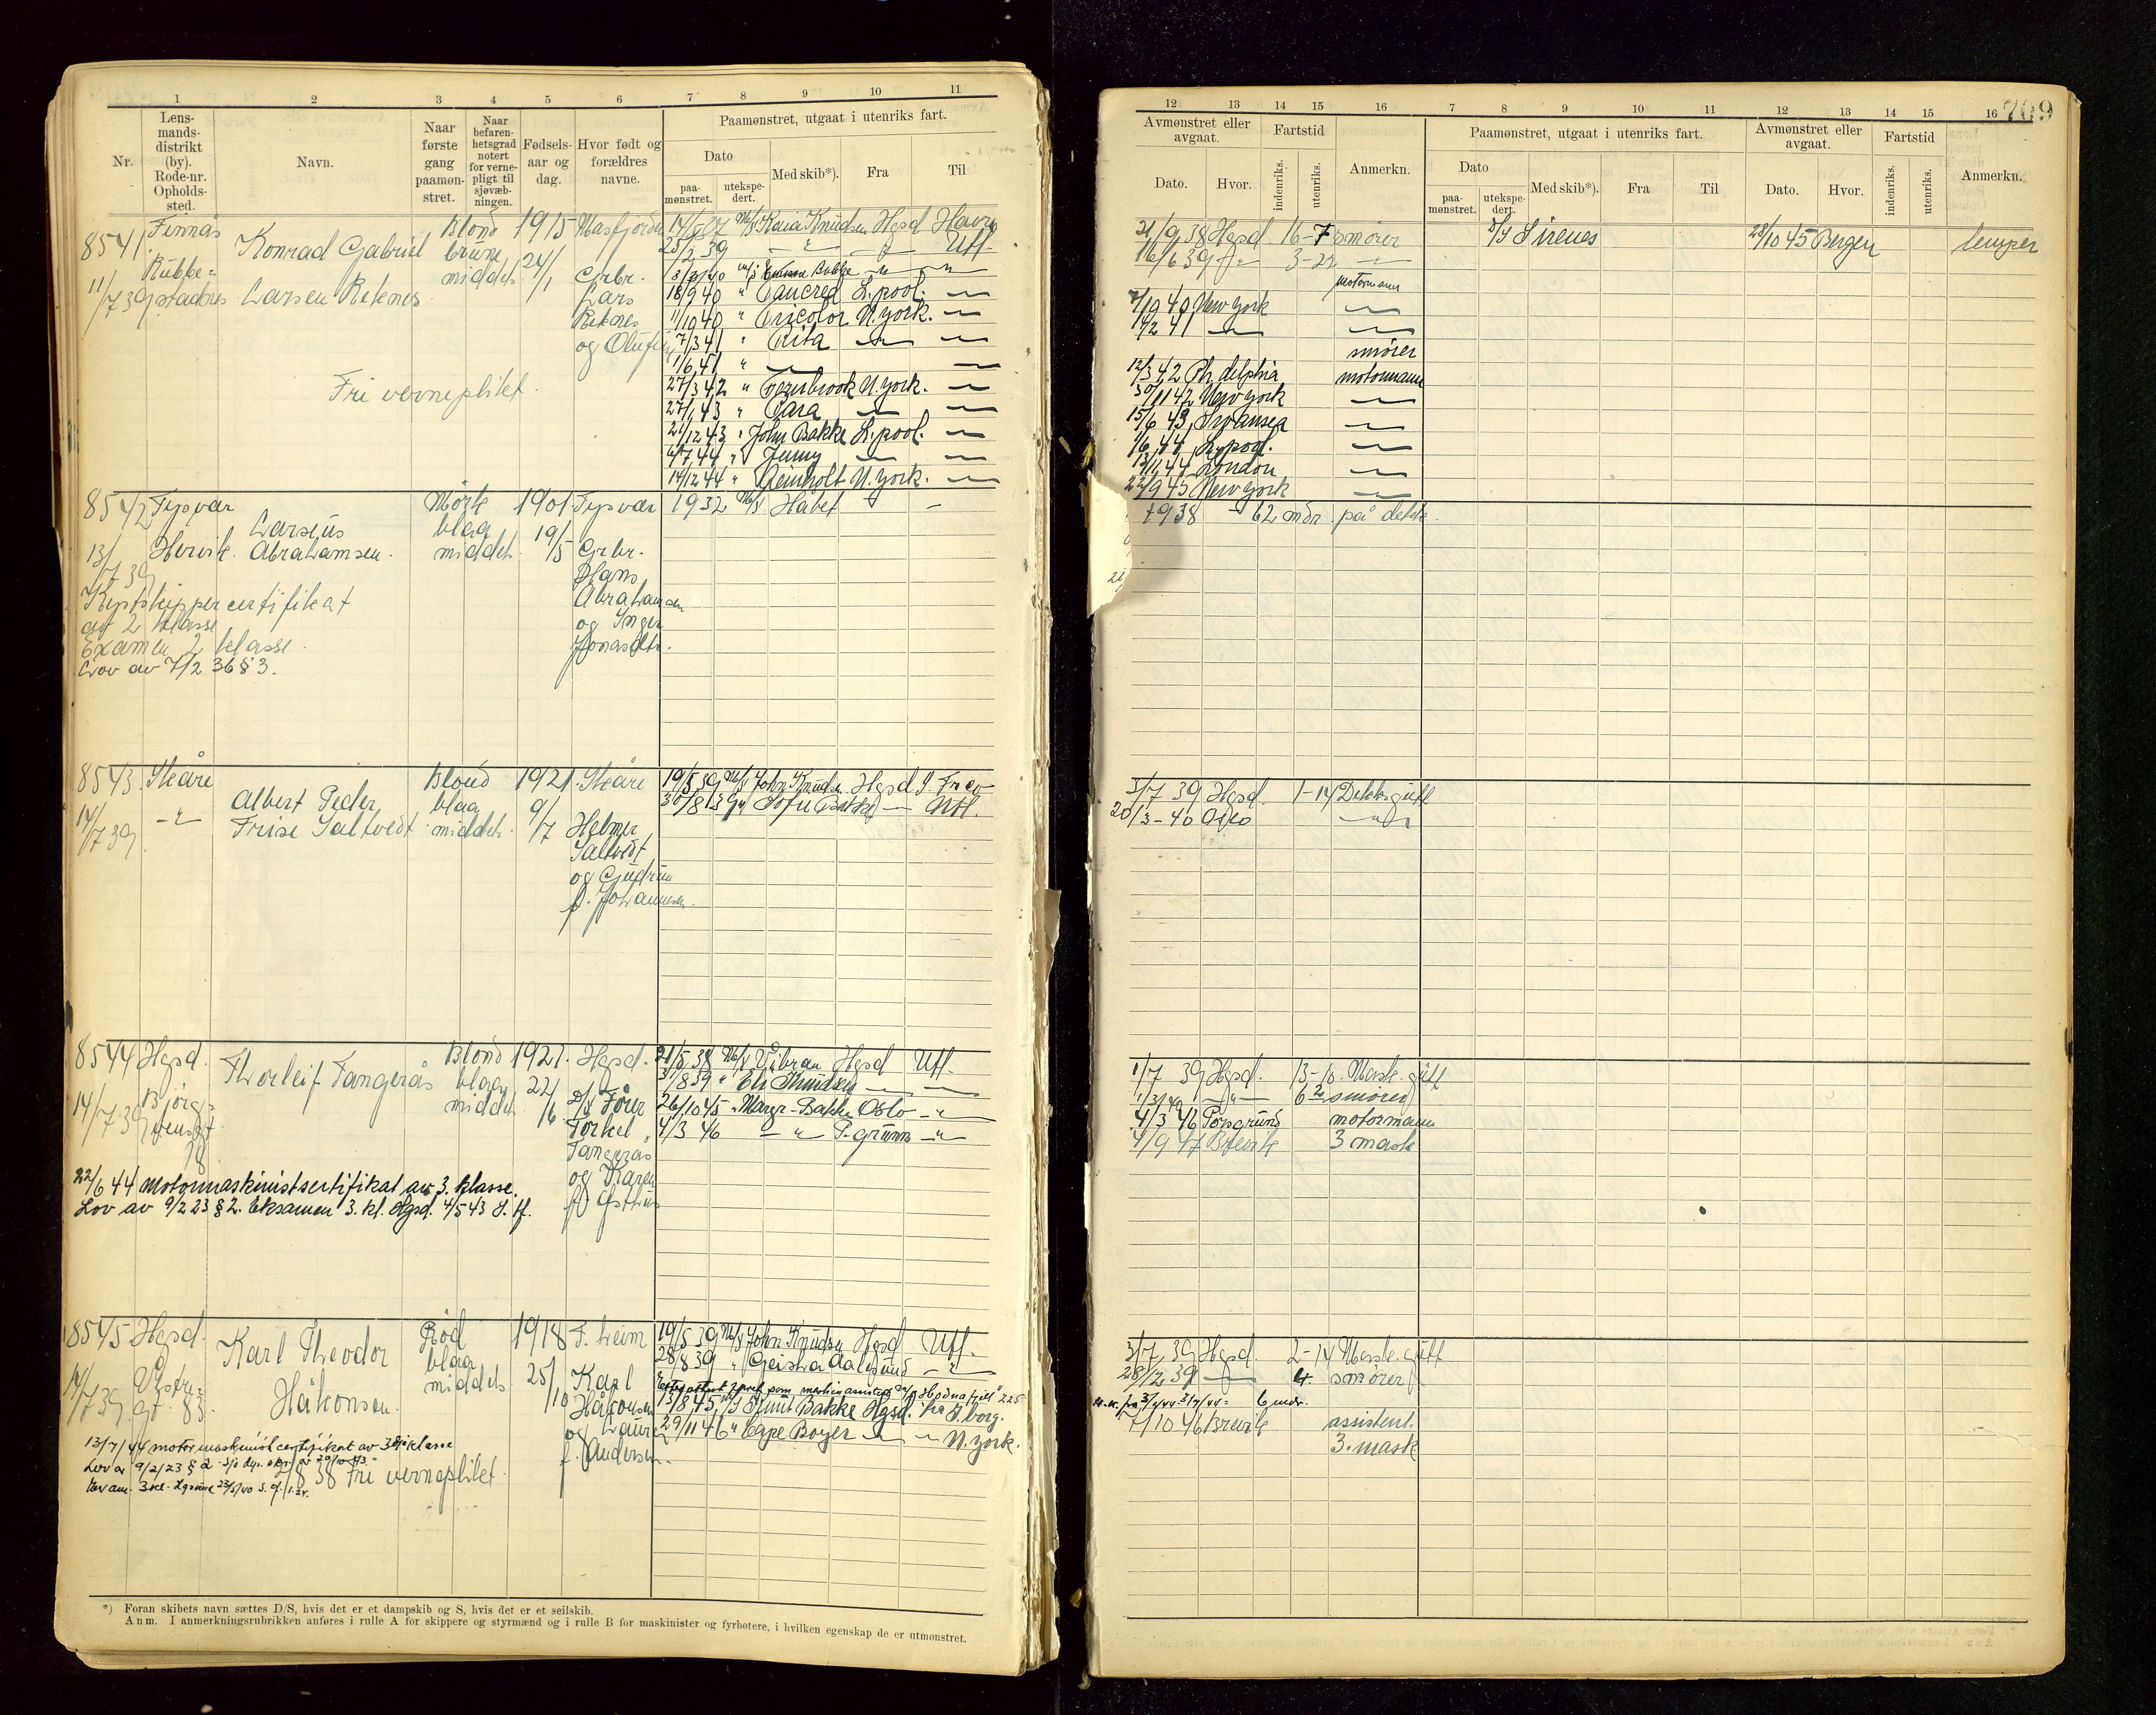 1 2 3 4 5 6 7 8 9 10 11
Nr.
Lens-
mands-
distrikt
(by).
Rode-nr.
Opholds-
sted.
Navn.
Naar
første
gang
paamøn-
stret.
Naar
befaren-
hetsgrad
notert
for verne-
pligt til
sjøvæb-
ningen.
Fødsels-
aar og
dag.
Hvor født og
forældres
navne.
Paamønstret, utgaat i utenriks fart.
Dato
paa-
mønstret.
utekspe-
dert.
Med skib*).
Fra
Til
8541 Finnås
11/7 39
Konrad Gabriel
Larsen Reknes
Blond
brune
middels
1915
24/1
Masfjorden
Grbr.
Lars
Reknes
og
Fri verneplikt.
M/S Kaia Knudsen Hgsd Havre
25/2 39 Utl.
18/9 40 " Tancred L.pool. -"-
11/10 40 " Tricolor N.york. -"-
7/3 41 " Rita -"- -"-
1/6 41 " -"-
27/3 42 " N.york. -"-
27/1 43 " Tara -"- -"-
21/12 43 " John Bakke L.pool. -"-
4/7 44 " Jenny -"- -"-
14/12 44 " Reinholt N.york. -"-
8542 Tysvær
13/7 39
Hervik.
Larsius
Abrahamsen.
Mörk
blaa
middels
1901
19/5
Tysvær
Grbr.
Hans
Abrahamsen
og Inger
Jonasdtr.
1932 M/S Håbet
Kystskippercertifikat
av 2 klasse
Examen 2 klasse.
Lov av 7/2 36 § 3.
8543. Skåre
14/7 39
-"-
Albert Peder
Frise Saltvedt
Blond
blaa
middels.
1921.
9/7
Skåre
Helmer
Saltvedt
og Gudrun
f. Johannesen.
19/5 39 M/S John Knudsen Hgsd
30/8 39 Sofie Bakke -"- Utl.
8544 Hgsd.
14/7 39
Thorleif Tangerås
Blond
blaa
middels
1921.
22/6
Hgsd.
Torkel
Tangerås
og Karen
21/5 38 M/S Vibran Hgsd Utl.
31/8 39 " Eli Knudsen -"- -"-
26/10 45 " Margr. Bakke Oslo -"-
4/3 46 -"- P.grunn -"-
22/6 44 Motormaskinistsertifikat av 3. klasse.
Lov av 9/2 23 § 2. Eksamen 3. kl. Hgsd. 4/5 43 S. H.
8545 Hgsd.
14/7 39.
gt. 83.
Karl Theodor
Håkonsen.
Röd
blaa
middels
1918
25/10
Karl
Håkonsen
og Laura
f. Andersen.
19/5 39 M/S John Knudsen Hgsd Utl.
28/8 39 " Geisha Aalesund -"-
13/8 45 M/S Knut Bakke Hgsd.
29/11 46 " Cape Boyer -"- N.york.
13/7/44 motormaskinist certifikat av 3die klasse
Lov av 9/2/23 § 2
38 Fri verneplikt.
*) Foran skibets navn sættes D/S, hvis det er et dampskib og S, hvis det er et seilskib.
Anm. I anmerkningsrubrikken anføres i rulle A for skippere og styrmænd og i rulle B for maskinister og fyrbøtere, i hvilken egenskap de er utmonstret.
12 13 14 15 16 7 8 9 10 11 12 13 14 15 16
709
Avmønstret eller
avgaat.
Dato.
Hvor.
Fartstid
indenriks.
utenriks.
Anmerkn.
Paamønstret, utgaat i utenriks fart.
Dato
paa-
mønstret.
utekspe-
dert.
Med skib*).
Fra
Til
Avmønstret eller
avgaat.
Dato.
Hvor.
Fartstid
indenriks.
utenriks.
Anmerkn.
21/9 38 Hgsd. 16-7 smörer
D/S Sirenes
28/10 45 Bergen
lemper
16/6 39 -"- 3-22 -"-
motormann
7/10 40 New york -"-
14/2 41 -"- -"-
smører
12/3 42 Ph.delphia motormann
30/11 42 New york -"-
15/6 43 Swansea -"-
1/6 44 L.pool. -"-
13/11 44 London -"-
22/9 45 New york -"-
1938 - 62 mdr på dekk.
3/7 39 Hgsd. 1-14 Dekksgutt
20/3-40 Oslo -"-
1/7 39 Hgsd. 13-10. Mask. gutt
-"- smörer
4/3 46 Porsgrund motormann
4/9 47 Brevik 3 mask
3/7 39 Hgsd. 2-14 Mask. gutt
28/12 39 -"- 4. smörer
6 mdr.
7/10 46 Brevik assistent.
3. mask